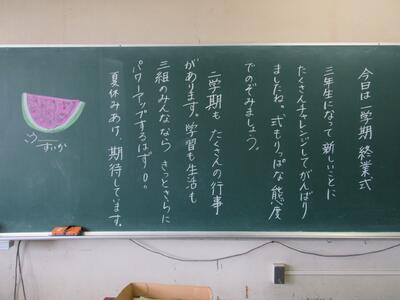 今日は一学期 終業式
三年生になって新しいことに
たくさんチャレンジしてがんばり
ましたね。式もりっぱな態度
でのぞみましょう。
二学期も たくさんの行事
があります。学習も生活も
三組のみんななら きっとさらに
パワーアップするはず!。
夏休みあけ、期待しています。
すいか